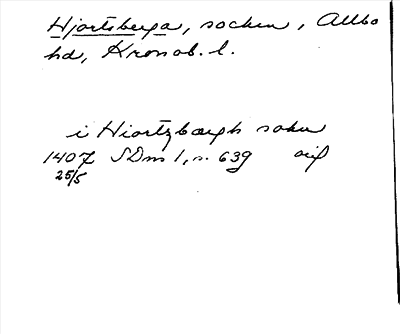 Hjortsberga, socken, Allbo
hd, Kronob. l.
i Hiortzbærgh sokn
1407 SDns 1, s. 639 orig
25/5